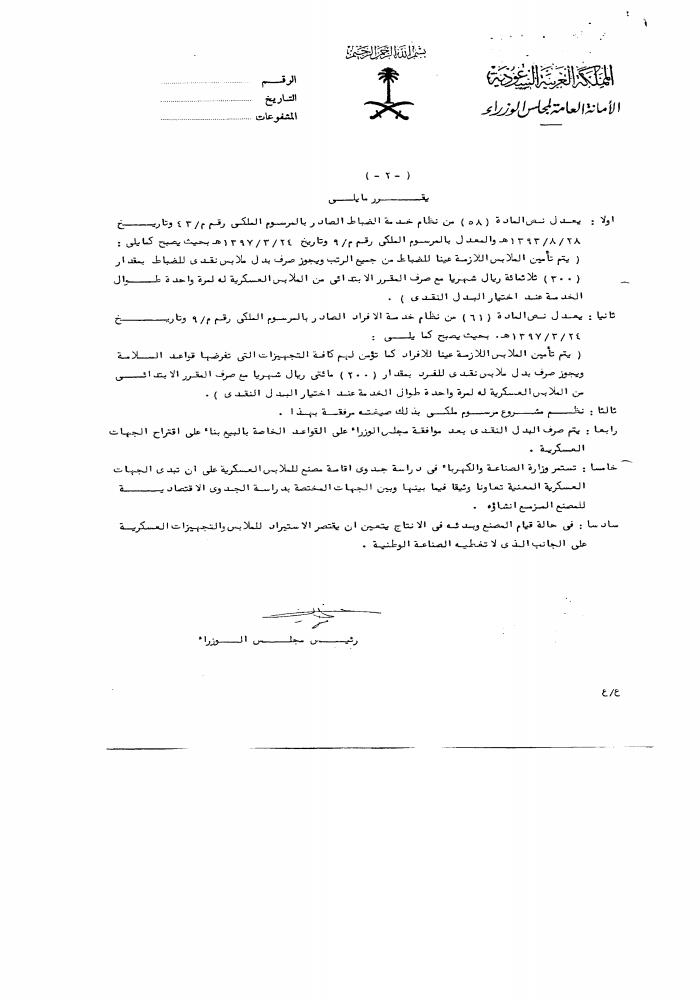 بسم الله الرحمن الرحيم
المملكة العربية السعودية
الأمانة العامة لمجلس الوزراء
الرقم
التاريخ
المشفوعات
( - ٢ - )
يقرر مايلى
اولا : يعدل نص المادة ( ٥٨ ) من نظام خدمة الضباط الصادر بالمرسوم الملكى رقم م/٤٣ وتاريخ
١٣٩٣/٨/٢٨هـ والمعدل بالمرسوم الملكى رقم م/٩ وتاريخ ١٣٩٧/٣/٢٤هـ بحيث يصبح كمايلى :
( يتم تأمين الملابس اللازمة عينا للضباط من جميع الرتب ويجوز صرف بدل ملابس نقدى للضباط بمقدار
( ٣٠٠ ) ثلاثمائة ريال شهريا مع صرف المقرر الابتدائى من الملابس العسكرية له لمرة واحدة طوال
الخدمة عند اختيار البدل النقدى ) .
ثانيا : يعدل نص المادة ( ٦١ ) من نظام خدمة الافراد الصادر بالمرسوم الملكى رقم م/٩ وتاريخ
١٣٩٧/٣/٢٤هـ. بحيث يصبح كما يلى :
( يتم تأمين الملابس اللازمة عينا للافراد كما تؤمن لهم كافة التجهيزات التى تفرضها قواعد السلامة
ويجوز صرف بدل ملابس نقدى للفرد بمقدار ( ٢٠٠ ) مائتى ريال شهريا مع صرف المقرر الابتدائى
من الملابس العسكرية له لمرة واحدة طوال الخدمة عند اختيار البدل النقدى ) .
ثالثا : نظم مشروع مرسوم ملكى بذلك صيغته مرفقة بهذا .
رابعا : يتم صرف البدل النقدى بعد موافقة مجلس الوزراء على القواعد الخاصة بالبيع بناء على اقتراح الجهات
العسكرية .
خامسا : تستمر وزارة الصناعة والكهرباء فى دراسة جدوى اقامة مصنع للملابس العسكرية على ان تبدى الجهات
العسكرية المعنية تعاونا وثيقا فيما بينها وبين الجهات المختصة بدراسة الجدوى الاقتصادية
للمصنع المزمع انشاؤه .
سادسا : فى حالة قيام المصنع وبدئه فى الانتاج يتعين ان يقتصر الاستيراد للملابس والتجهيزات العسكرية
على الجانب الذى لا تغطيه الصناعة الوطنية .
رئيس مجلس الوزراء
ع/ع